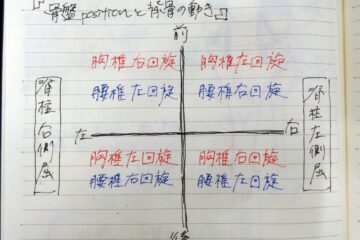 『骨盤positionと背骨の動き』
前
胸椎右回旋 胸椎左回旋
腰椎左回旋 腰椎右回旋
脊柱右側屈
左
右
脊柱左側屈
胸椎左回旋 胸椎右回旋
腰椎右回旋 腰椎左回旋